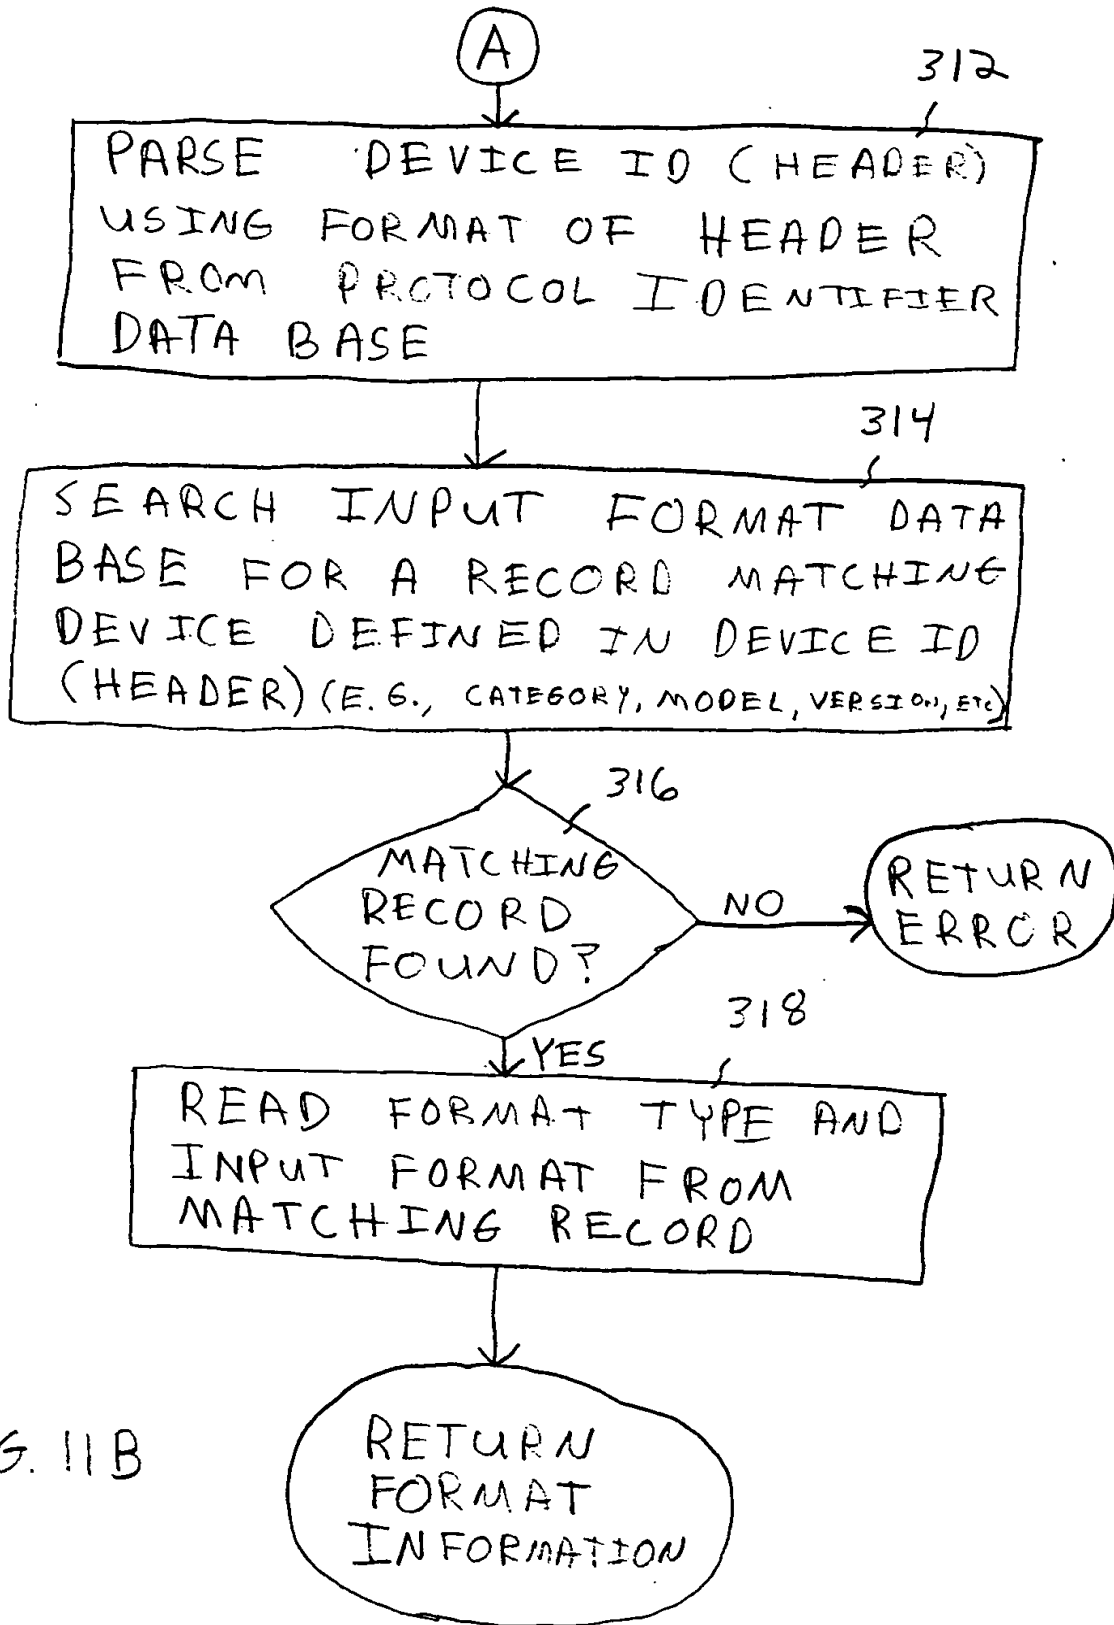 A
312
PARSE DEVICE ID (HEADER)
USING FORMAT OF HEADER
FROM PROTOCOL IDENTIFIER
DATA BASE
314
SEARCH INPUT FORMAT DATA
BASE FOR A RECORD MATCHING
DEVICE DEFINED IN DEVICE ID
(HEADER) (E.G., CATEGORY, MODEL, VERSION, ETC)
316
MATCHING
RECORD
FOUND?
NO
RETURN
ERROR
318
YES
READ FORMAT TYPE AND
INPUT FORMAT FROM
MATCHING RECORD
RETURN
FORMAT
INFORMATION
G. 11B